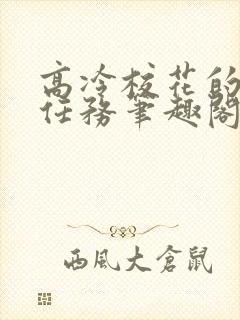 高冷校花的
任務筆趣閣
西風大倉鼠